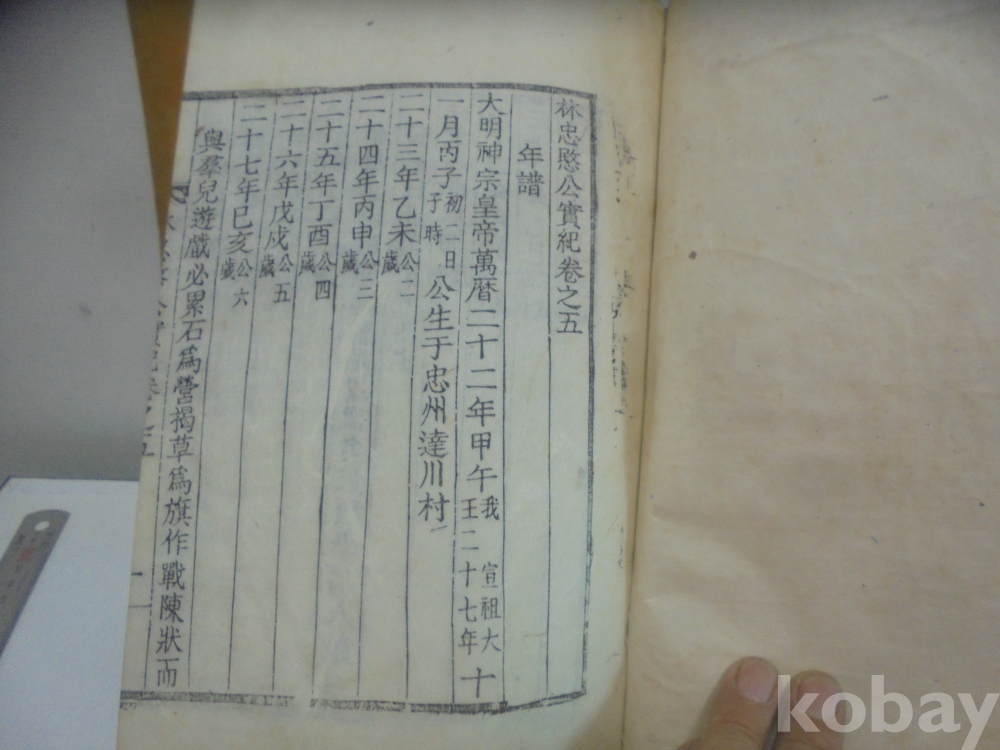 林忠愍公實紀卷之五
年譜
大明神宗皇帝萬曆二十二年甲午我 宣祖大王二十七年十
一月丙子初二日子時公生于忠州達川村
二十三年乙未公二歲
二十四年丙申公三歲
二十五年丁酉公四歲
二十六年戊戌公五歲
二十七年己亥公六歲
與羣兒遊戲必累石爲營揭草爲旗作戰陳狀而
kobay